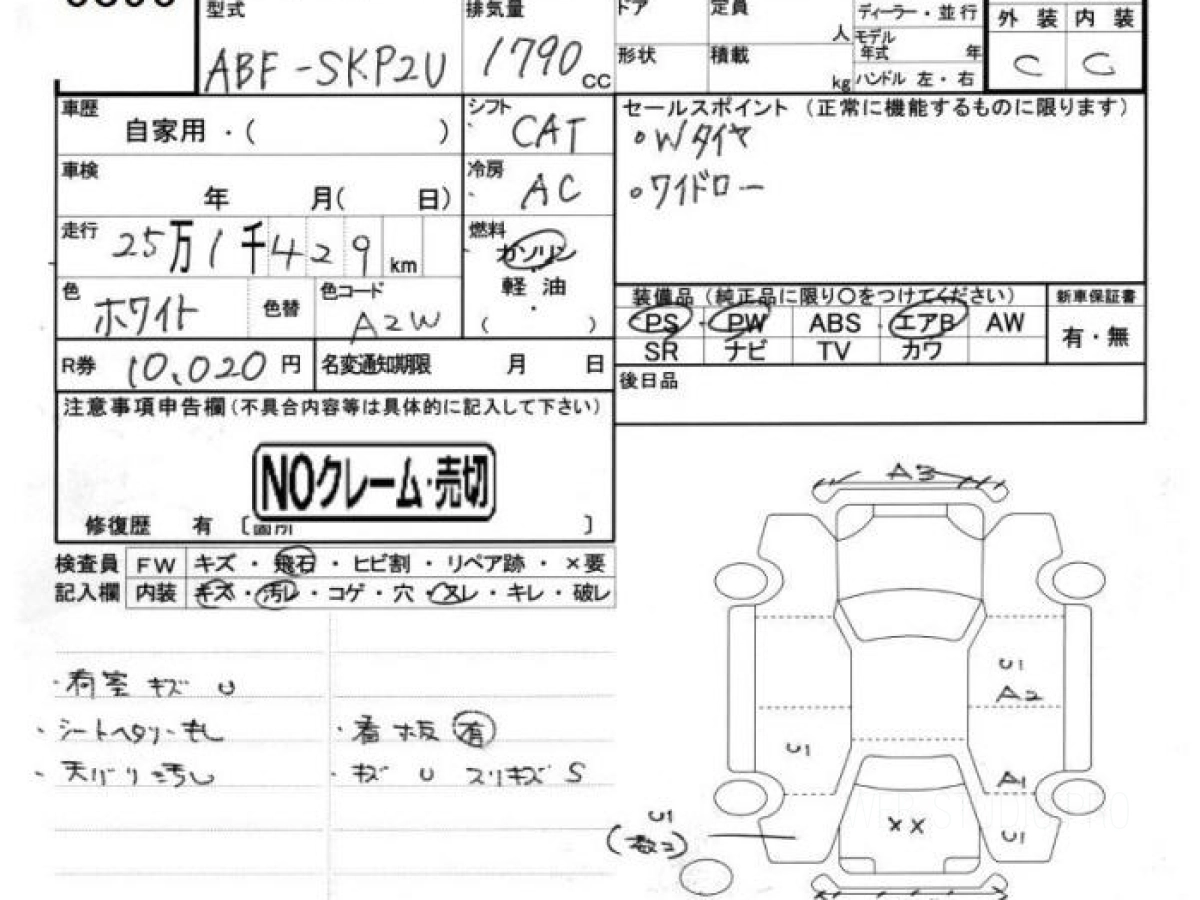 型式 排気量 ドア 定員 人 ディーラー・並行
ABF-SKP2U 1790 CC
形状 積載 kg モデル年式 年 ハンドル 左・右
外装 内装
C C
車歴 自家用・( )
シフト CAT
車検 年 月( 日)
冷房 AC
走行 25万1千429 km
燃料 ガソリン
軽油
( )
色 ホワイト 色替 色コード A2W
R券 10,020 円 名変通知期限 月 日
セールスポイント (正常に機能するものに限ります)
・Wタイヤ
・ワイドロー
装備品(純正品に限り〇をつけてください) 新車保証書
PS PW ABS エアB AW 有・無
SR ナビ TV カワ
後日品
注意事項申告欄(不具合内容等は具体的に記入して下さい)
NOクレーム・売切
修復歴 有 [箇所 ]
検査員 FW キズ・飛石・ヒビ割・リペア跡・×要
記入欄 内装 キズ・汚レ・コゲ・穴・スレ・キレ・破レ
・荷室 キズ U
・シートヘタリ
・天バリ汚れ
・看板 有
・キズ U スリキズ S
A3
U1
A2
U1
A1
U1
××
U1
(数コ)